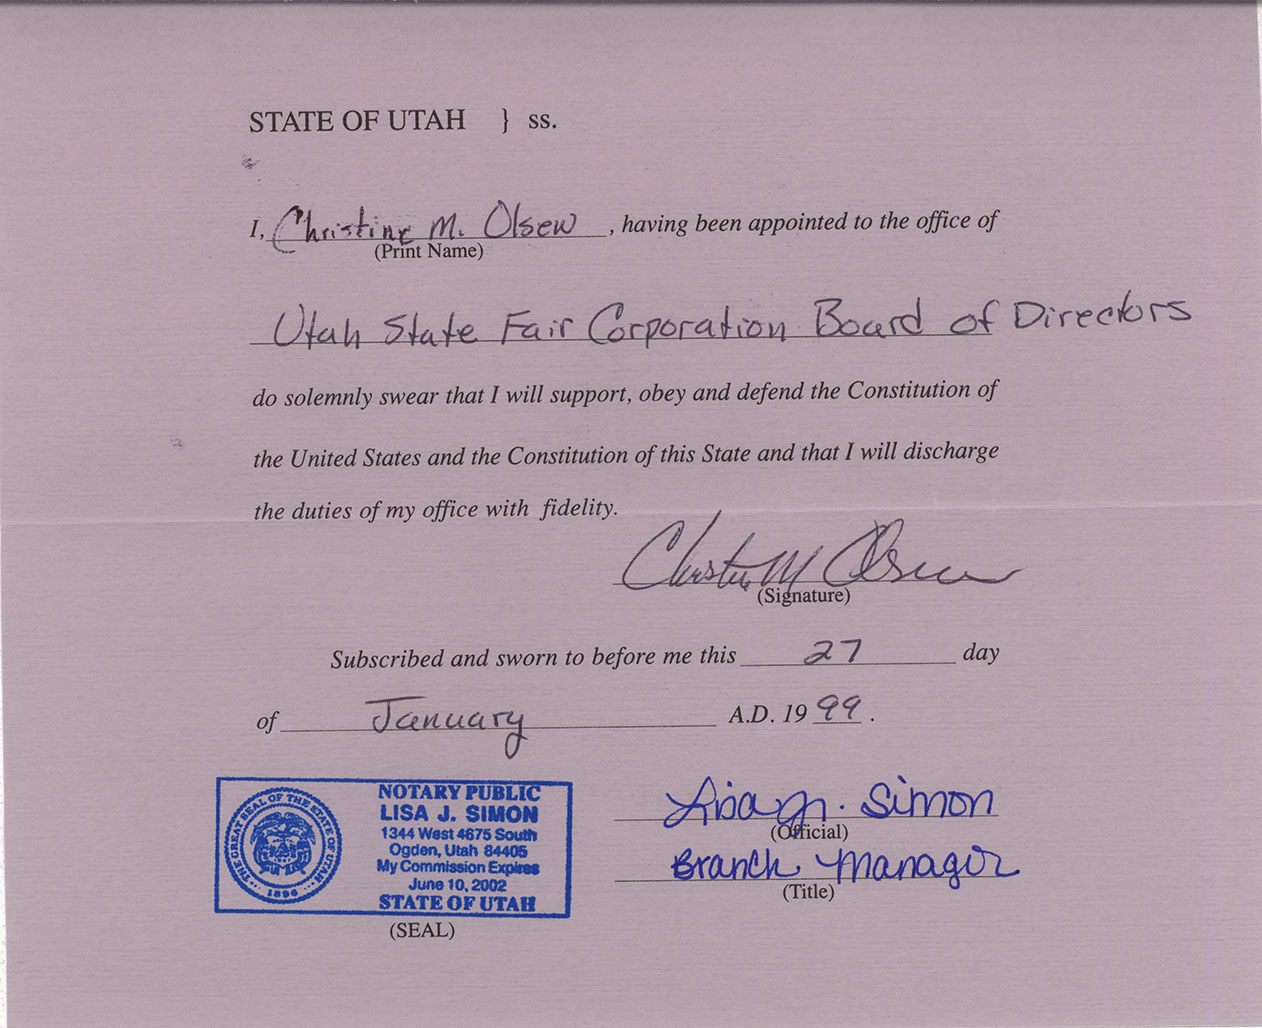 STATE OF UTAH } ss.
I, Christine M. Olsen, having been appointed to the office of
(Print Name)
Utah State Fair Corporation Board of Directors
do solemnly swear that I will support, obey and defend the Constitution of
the United States and the Constitution of this State and that I will discharge
the duties of my office with fidelity.
Christine M Olsen
(Signature)
Subscribed and sworn to before me this 27 day
of January A.D. 1999.
Lisa J. Simon
(Official)
Branch Manager
(Title)
THE GREAT SEAL OF THE STATE OF UTAH
1896
NOTARY PUBLIC
LISA J. SIMON
1344 West 4675 South
Ogden, Utah 84405
My Commission Expires
June 10, 2002
STATE OF UTAH
(SEAL)